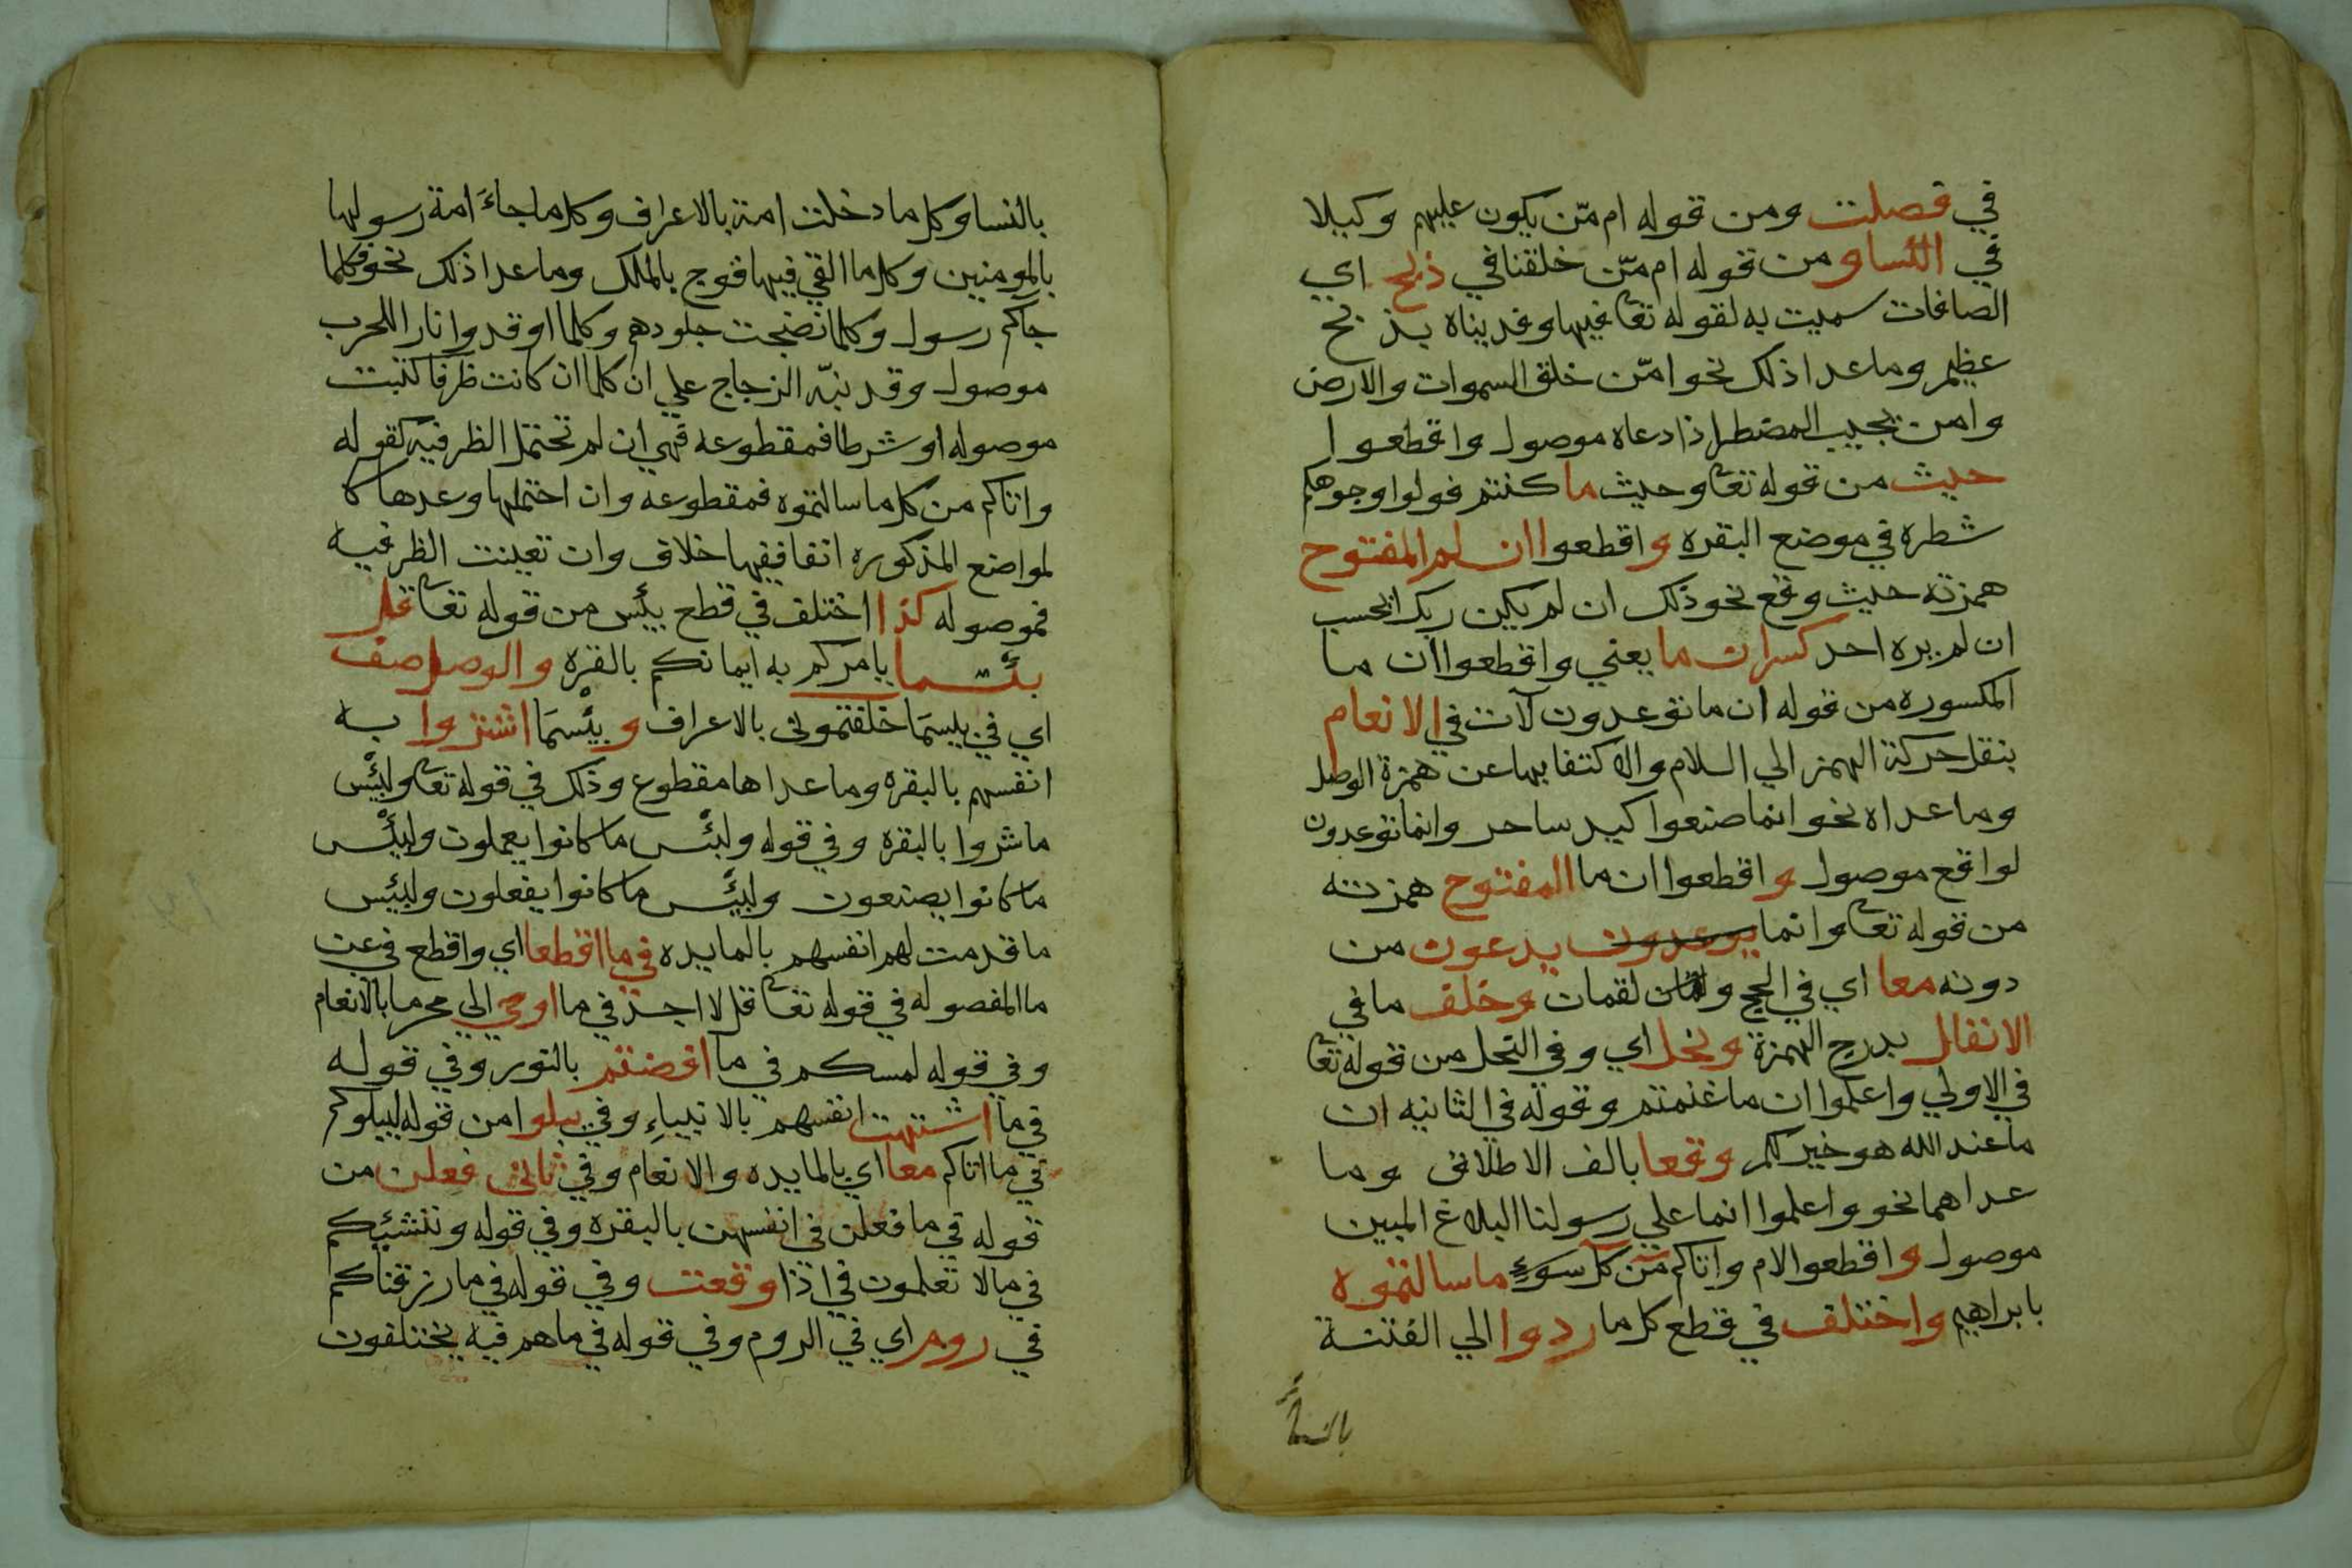 في فصلت ومن قوله ام مّن يكون عليهم وكيلا
في النساو من قوله ام مّن خلقنا في ذبح اي
الصافات سميت به لقوله تعا فيها وفديناه بذبح
عظيم وما عدا ذلك نحو امّن خلق السموات والارض
وامن يجيب المضطر اذا دعاه موصول واقطعوا
حيث من قوله تعا وحيث ما كنتم فولوا وجوهكم
شطره في موضع البقره واقطعوا ان لم المفتوح
همزته حيث وقع نحو ذلك ان لم يكن ربك ايحسب
ان لم يره احد كسر ان ما يعني واقطعوا ان ما
المكسوره من قوله ان ما توعدون لآت في الانعام
بنقل حركة الهمز الي السلام والاكتفا بها عن همزة الوصل
وما عداه نحو انما صنعوا كيد ساحر وانما توعدون
لواقع موصول واقطعوا ان ما المفتوح همزته
من قوله تعا وانما يوعدون يدعون من
دونه معا اي في الحج ولقمان لقمان وخلف ما في
الانفال بدرج الهمزة ونحل اي وفي النحل من قوله تعا
في الاولي واعلموا ان ما غنمتم وقوله في الثانيه ان
ما عند الله هو خير لكم وقعا بالف الاطلاق وما
عداهما نحو واعلموا انما علي رسولنا البلاغ المبين
موصول واقطعوا لام واتاكم من كل سوء ما سالتموه
بابراهيم واختلف في قطع كل ما ردوا الي الفتنة
بالنسا
بالنسا وكل ما دخلت امة بالاعراف وكل ما جاءَ امة رسولها
بالمومنين وكل ما القي فيها فوج بالملك وما عدا ذلك نحو فكلما
جاكم رسول وكلما نضجت جلودهم وكلما اوقدوا نارا للحرب
موصول وقد نبّه الزجاج علي ان كلما ان كانت ظرفا كتبت
موصوله او شرطا فمقطوعه فهي ان لم تحتمل الظرفيه كقوله
واتاكم من كل ما سالتموه فمقطوعه وان احتملها وعدها كا
لمواضع المذكوره اتفا ففيها خلاف وان تعينت الظرفيه
فموصوله كذا اختلف في قطع بئس من قوله تعا قل
بئسما يامركم به ايمانكم بالقره والوصل صف
اي في بيسمَا خلفتموني بالاعراف وبئسمَا اشتروا به
انفسهم بالبقره وما عداها مقطوع وذلك في قوله تعا ولبئس
ما شروا بالبقره وفي قوله ولبئس ما كانوا يعملون ولبئس
ما كانوا يصنعون ولبئس ما كانوا يفعلون ولبئس
ما قدمت لهم انفسهم بالمايده في ما اقطعا اي واقطع في عن
ما المفصوله في قوله تعا قل لا اجد في ما اوحي الي محرما بالانعام
وفي قوله لمسكم في ما افضتم بالنور وفي قوله
في ما اشتهت انفسهم بالانبياءِ وفي يبلوا من قوله ليبلوكم
في ما اتاكم معا اي بالمايده والانعام وفي ثاني فعلن من
قوله في ما فعلن في انفسهن بالبقره وفي قوله وننشئكم
في مالا تعلمون في اذا وقعت وفي قوله في ما رزقناكم
في روم اي في الروم وفي قوله في ما هم فيه يختلفون